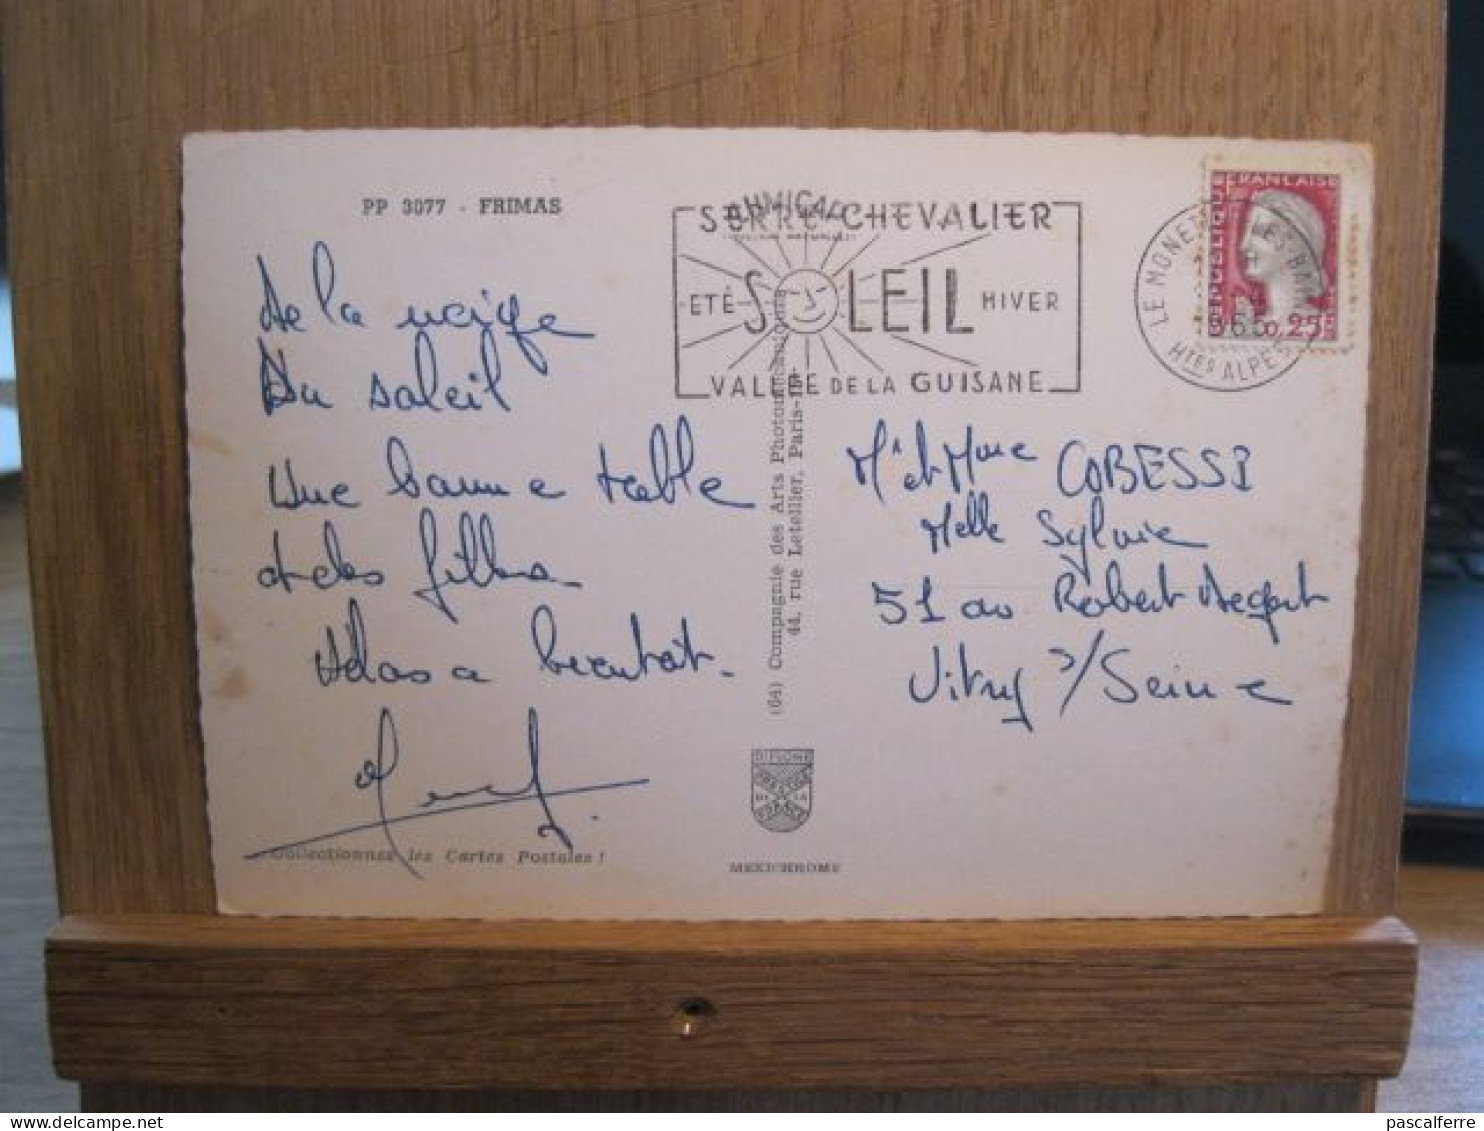 PP 3077 - FRIMAS
De la neige
Du soleil
Une bonne table
et des filles
A bientôt.
Collectionnez les Cartes Postales !
SERRE-CHEVALIER
ÉTÉ SOLEIL HIVER
VALLÉE DE LA GUISANE
RÉPUBLIQUE FRANÇAISE
0,25
LE MONETIER-LES-BAINS
Htes ALPES
(64) Compagnie des Arts Photomécaniques
44, rue Letellier, Paris-15e
Mr et Mme COBESSI
Melle Sylvie
51 av Robert
Vitry s/Seine
DIPLOME
PRESTIGE
DE LA
FRANCE
MEXICHROME
pascalferre